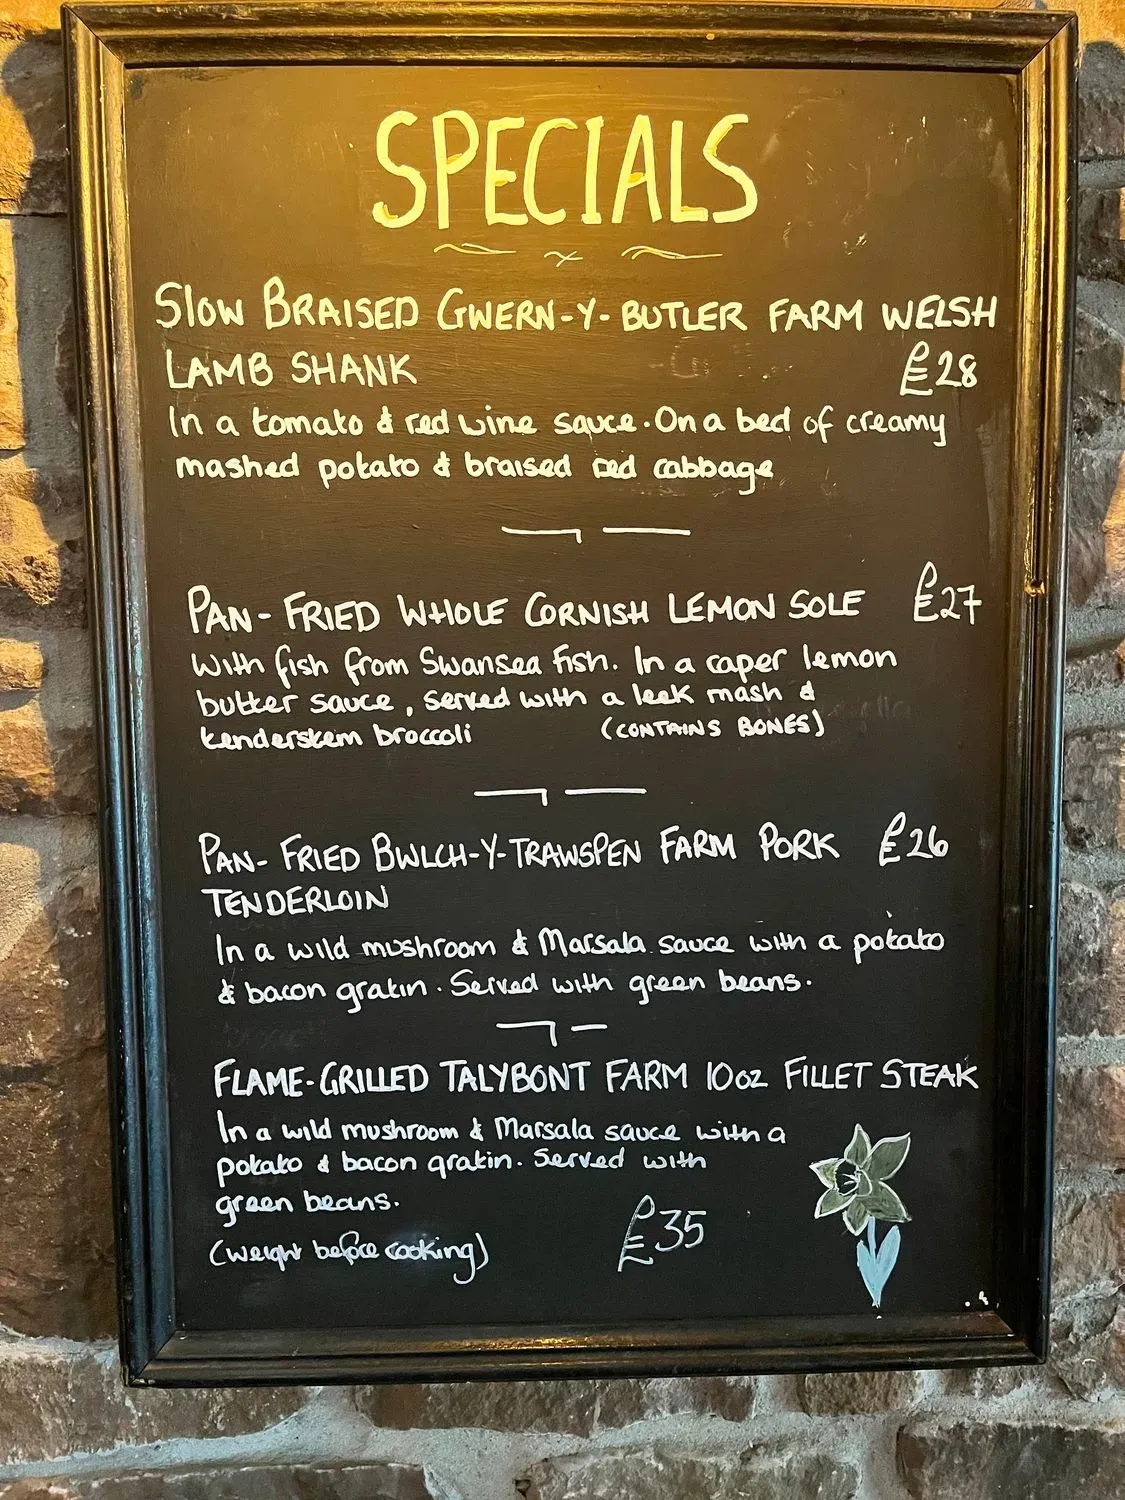 SPECIALS
SLOW BRAISED GWERN-Y-BUTLER FARM WELSH
LAMB SHANK £28
In a tomato & red wine sauce. On a bed of creamy
mashed potato & braised red cabbage
PAN-FRIED WHOLE CORNISH LEMON SOLE £27
With fish from Swansea Fish. In a caper lemon
butter sauce, served with a leek mash &
tenderstem broccoli (CONTAINS BONES)
PAN-FRIED BWLCH-Y-TRAWSPEN FARM PORK £26
TENDERLOIN
In a wild mushroom & Marsala sauce with a potato
& bacon gratin. Served with green beans.
FLAME-GRILLED TALYBONT FARM 10oz FILLET STEAK
In a wild mushroom & Marsala sauce with a
potato & bacon gratin. Served with
green beans.
(weight before cooking) £35